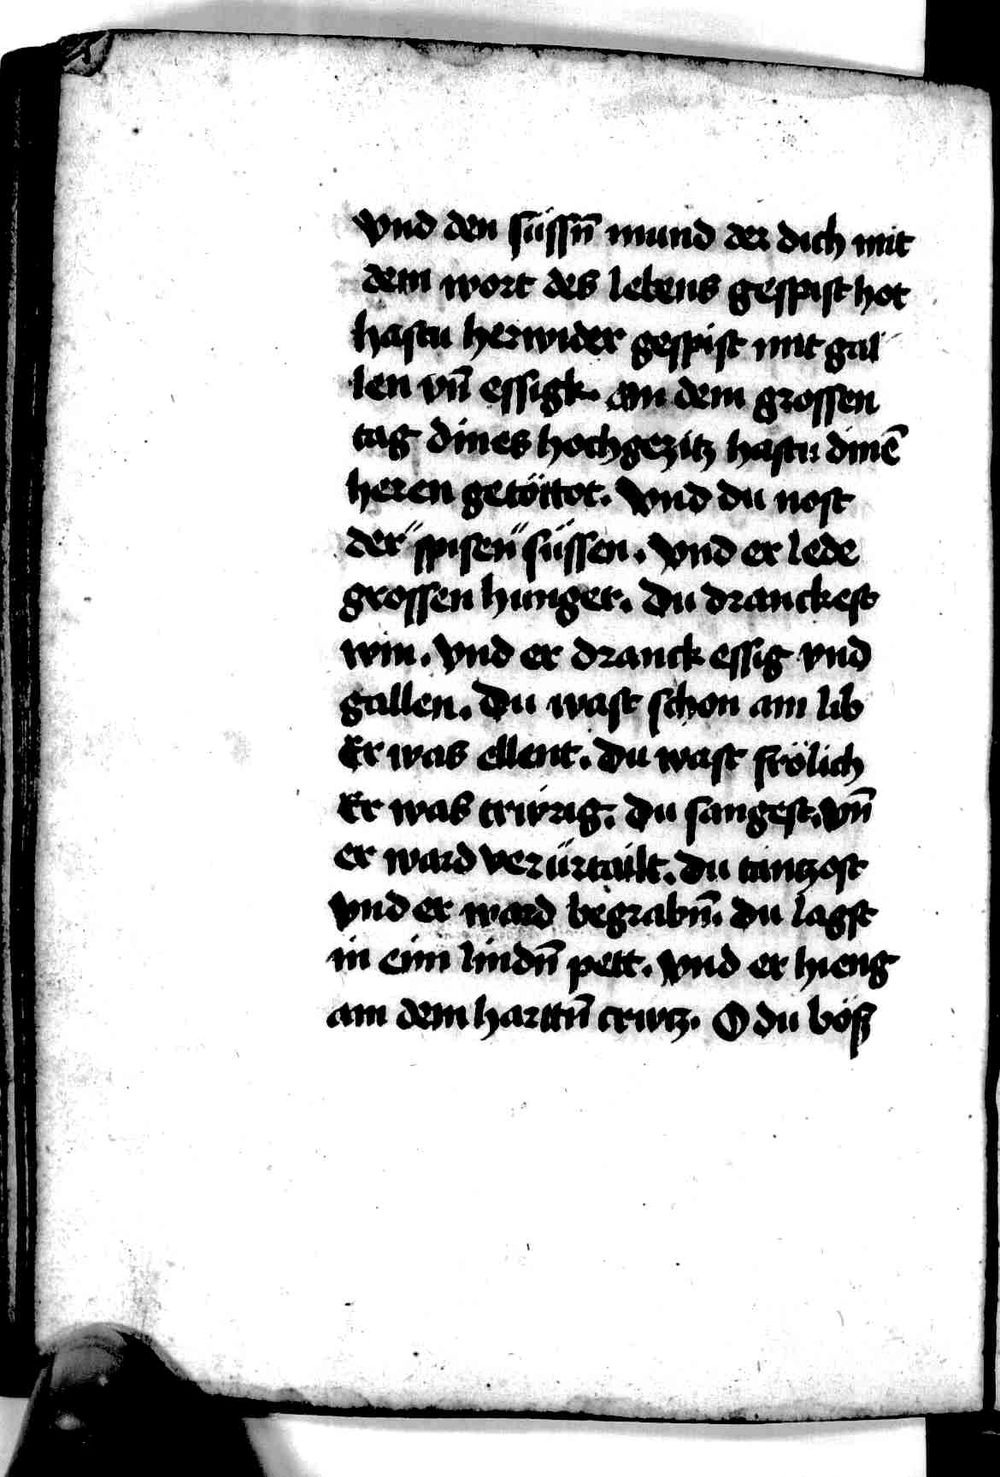 vnd den süssn̄ mund der dich mit
dem wort des lebens gespist hot
hastu herwider gespist mit gal
len vn̄ essigk. am dem grossen
tag dines hochgezitz hastu dinē
heren getöttot. Vnd du nost
der spisen süssen. Vnd er lede
grossen hunger. Du dranckest
win. Vnd er dranck essig vnd
gallen. Du wast schon am lib
Er was ellent. Du wast frölich
Er was trẅrig. Du sangest. vn̄
er ward verürtailt. Du tantzost
vnd er ward begrabn̄. Du lagst
in eim lindn̄ pett. Vnd er hieng
am dem harttn̄ crwtz. O du böß